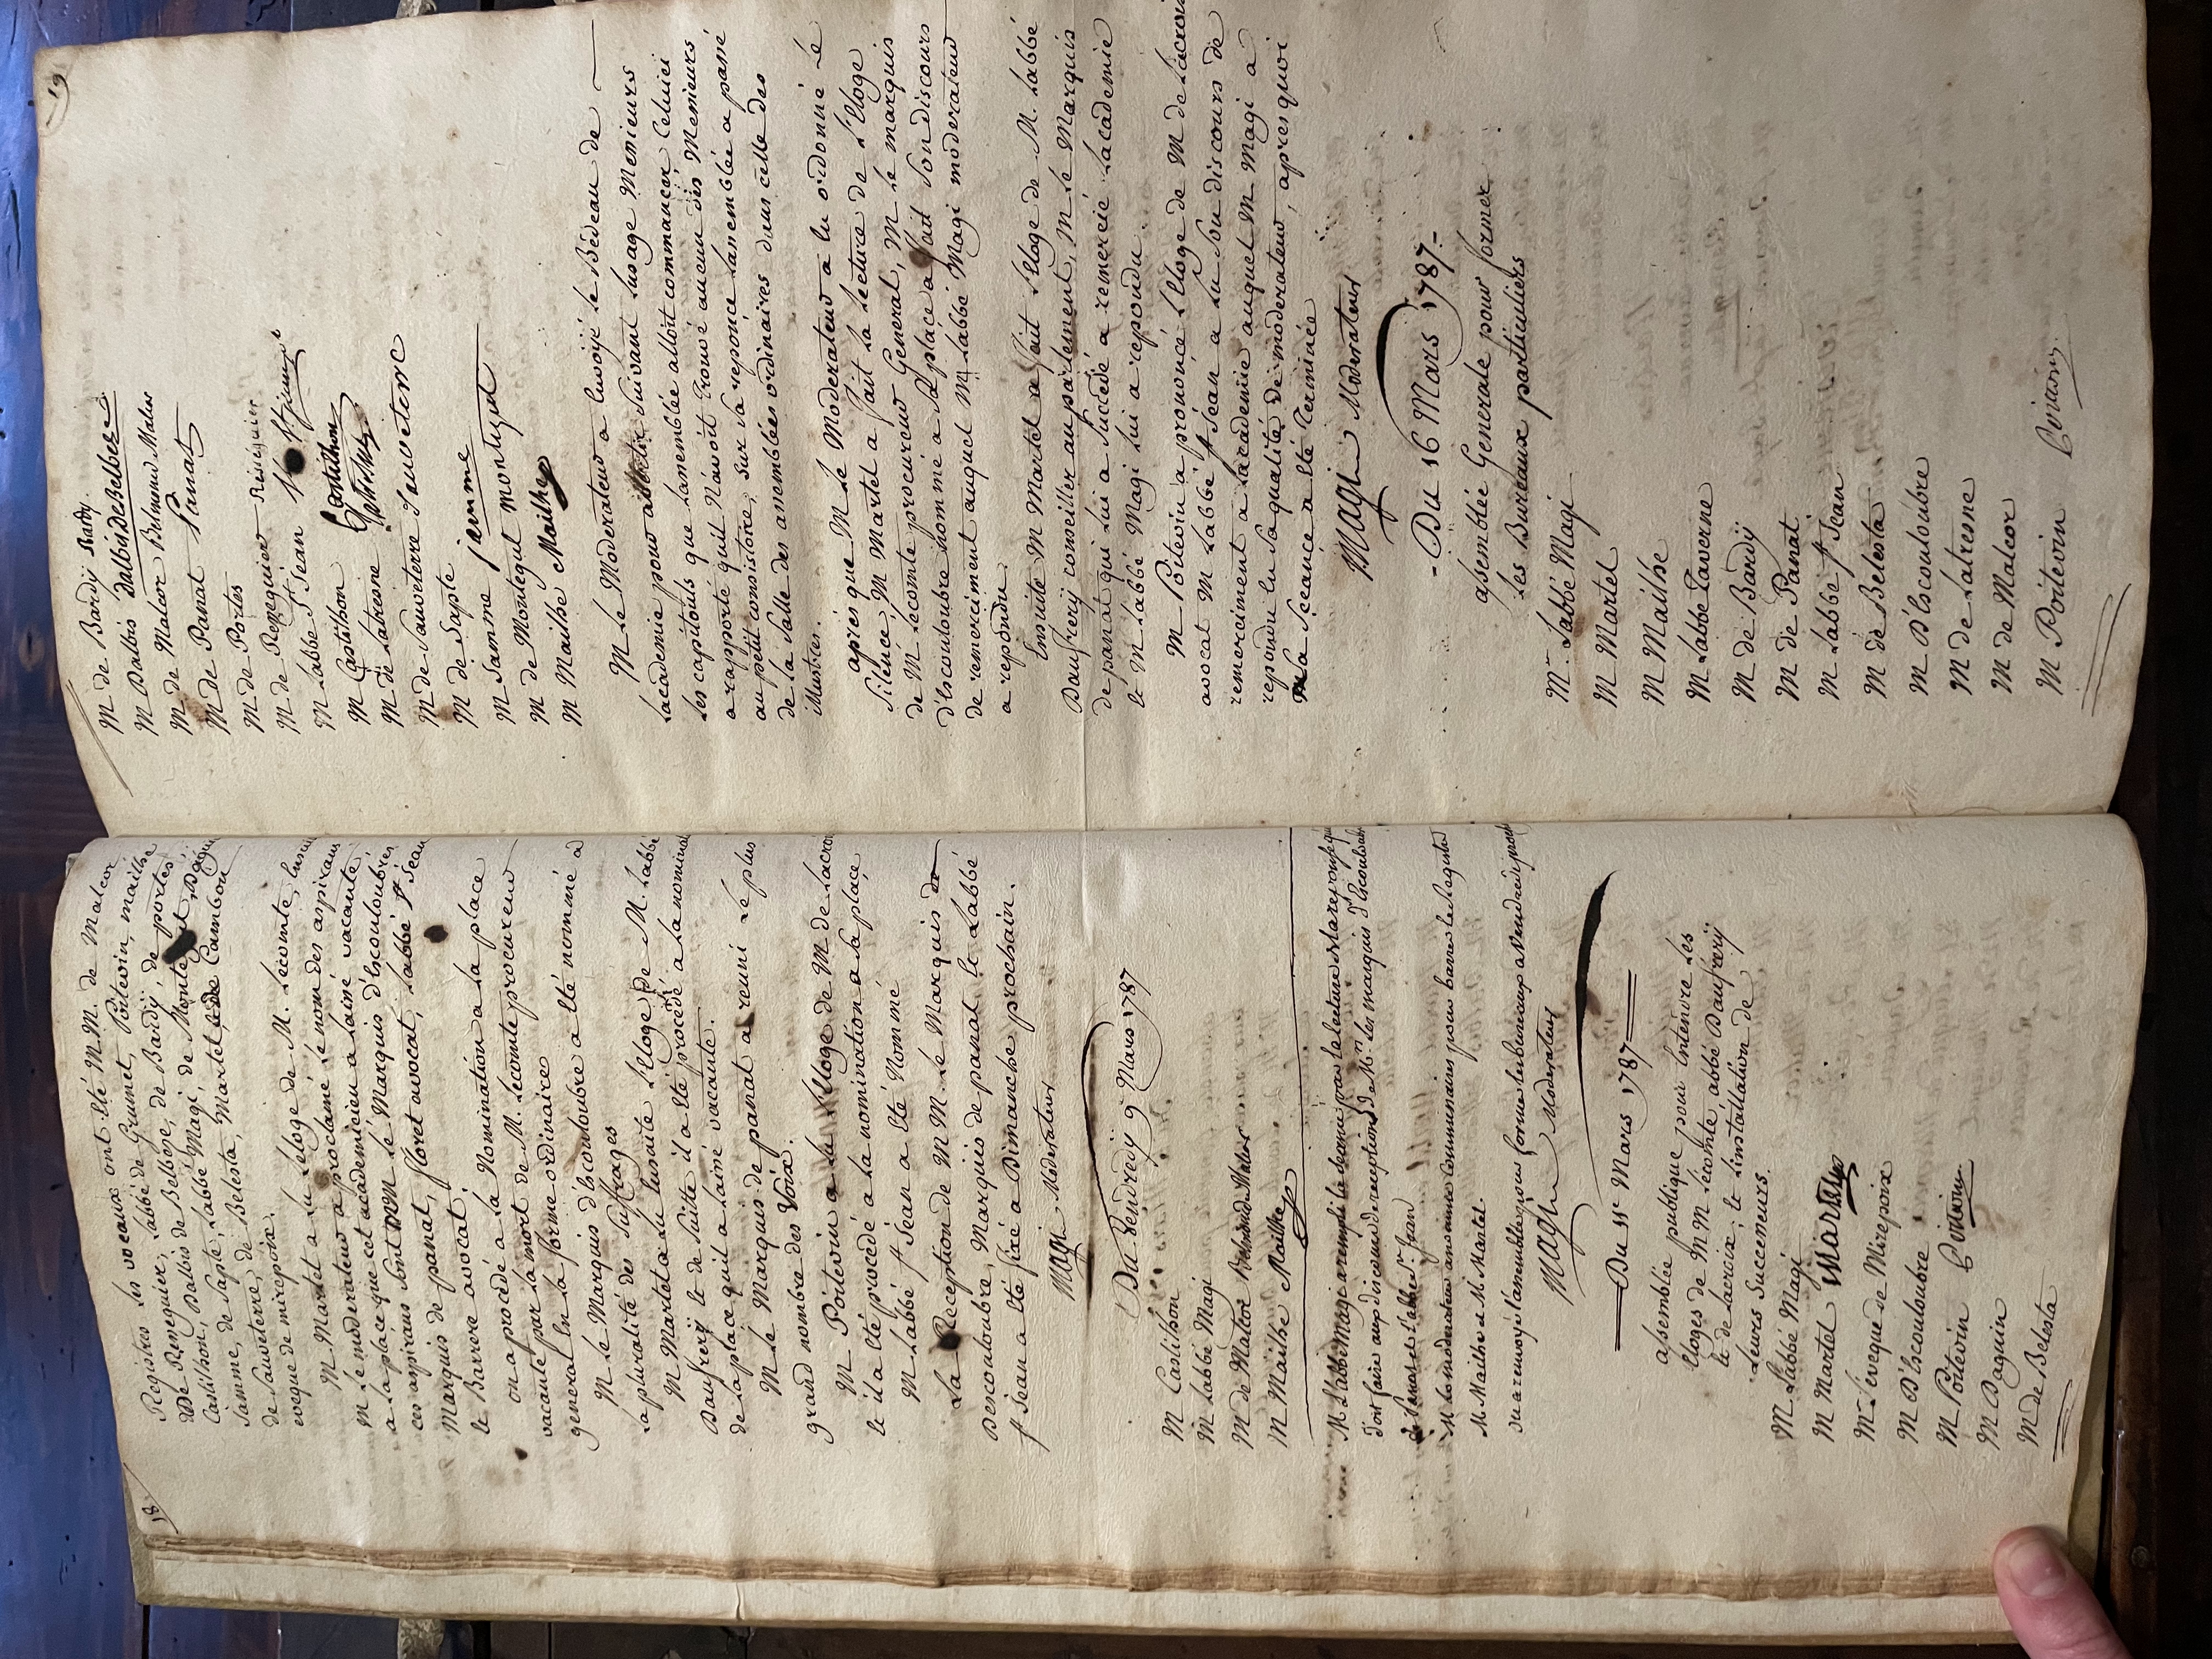 18
Registres les voeaux ont eté M M. de Malcor
De Reneguier, Labbé de Grumet, Poitevin, mailhe
Castilhon, Dalbis de Belbeze, de Bardÿ, de portes,
Samme, de Sapte, Labbé Magi, de Montegut, Daguin
de Sauveterre, de Belesta, Martel, de Cambon
eveque de mirepoix.
M Martel a lu L'éloge de M. Lecomte, ensuite
M Le moderateur a proclamé le nom des aspirans
a la place que cet academicien a laissé vacante
ces aspirans sont MM le Marquis d'Escouloubre
Marquis de panat, floret avocat, Labbé St Jean
et Barrere avocat.
on a procedé a la Nomination a la place
vacante par la mort de M. Lecomte procureur
general en la forme ordinaire
M Le Marquis d'Escouloubre a eté nommé a
la pluralité des suffrages
M Martel a lu Ensuite L'éloge de M. Labbé
Daufrerÿ et de Suitte il a eté procédé a la nomination
de la place qu'il a laissé vacante.
M Le Marquis de panat a reuni Le plus
grand nombre des Voix.
M Poitevin a lu L'éloge de M de Lacroix
et il a eté procedé a la nomination a sa place
M Labbé St Jean a eté Nommé
La Reception de M M. Le Marquis de
Descouloubre, Marquis de panat et Labbé
St Jean a eté fixé a Dimanche prochain.
Magi Moderateur
Du Vendredÿ 9 Mars 1787
M Castilhon
M Labbé Magi
M de Malcor Belmund Malcor
M Mailhe Mailhe
M L'abbé Magi a rempli la seance par la lecture de la reponse qu'il
doit faire aux discours de reception de Mrs Les marquis d'Escouloubre
de Panat et L'abbé St. Jean
M Le moderateur a nommé Commissaires pour barrer les registres
M Mailhe et M Martel.
on a renvoyé l'assemblée pour former les bureaux a Vendredi prochain
Magi Moderateur
Du 11e Mars 1787
assemblée publique pour Entendre Les
Eloges de M M Lecomte, abbé Daufrerÿ
et de Lacroix, et L'installation de
Leurs Successeurs.
M Labbé Magi
M Martel Martel
M L'eveque de Mirepoix
M D'Escouloubre
M Poitevin Poitevin
M Daguin
M de Belesta
19
M de Bardÿ Bardÿ.
M Dalbis Dalbis de Belbeze
M de Malcor Belmund Malcor
M de Panat Panat
M de Portes
M de Reneguier Réséguier
M Labbé St Jean St jean
M Castilhon Castilhon
M de Latresne
M de Sauveterre Sauveterre
M de Sapte
M Samme jamme
M de Montegut montegut
M Mailhe Mailhe
M Le Moderateur a Envoÿé le Bédeau de
Lacademie pour avertir suivant Lusage Messieurs
les capitouls que Lassemblée alloit commancer Celuici
a rapporté quil N'avoit trouvé aucun des Messieurs
au petit consistoire, sur sa reponce Lassemblée a passé
de la Salle des assemblées ordinaires dans celle des
illustres.
apres que M Le Moderateur a Eu ordonné Le
Silence, M Martel a fait la Lecture de L'Eloge
de M Lecomte procureur General, M Le marquis
d'Escouloubre nommé a sa place a fait son discours
de remerciment auquel M Labbé Magi moderateur
a repondu.
Ensuite M Martel a fait L'Eloge de M. Labbé
Daufrerÿ conseiller au parlement, M Le Marquis
de panat qui lui a succédé a remercié Lacademie
et M Labbé Magi lui a repondu.
M Poitevin a prononcé L'Eloge de M de Lacroix
avocat M Labbé St Jean a lu son discours de
remerciment a Lacademie auquel M Magi a
repondu En sa qualité de moderateur, apres quoi
La Seance a eté Terminée
Magi Moderateur
Du 16 Mars 1787
assemblée Generale pour former
Les Bureaux particuliers
Mr. Labbé Magi
M Martel
M Mailhe
M Labbé Taverne
M de Bardÿ
M de Panat
M Labbé St Jean
M de Belesta
M D'Escouloubre
M de Latresne
M de Malcor
M Poitevin Poitevin